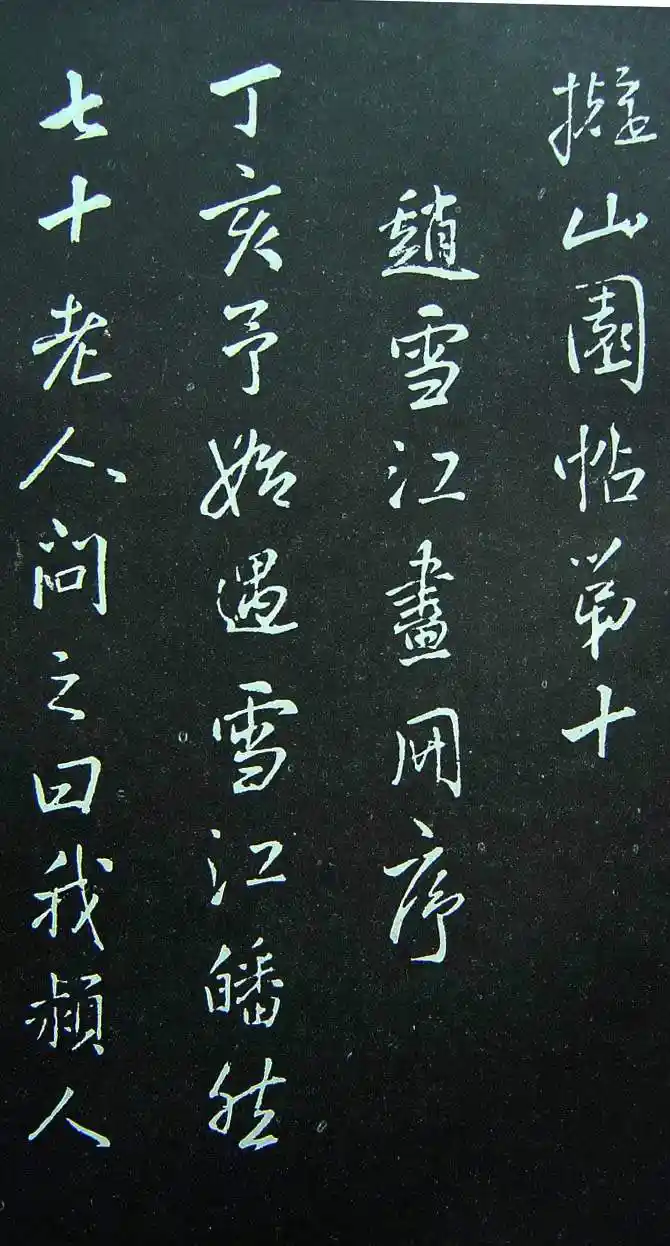 擬山園帖第十
趙雪江畫冊序
丁亥予始遇雪江皤然
七十老人問之曰我潁人